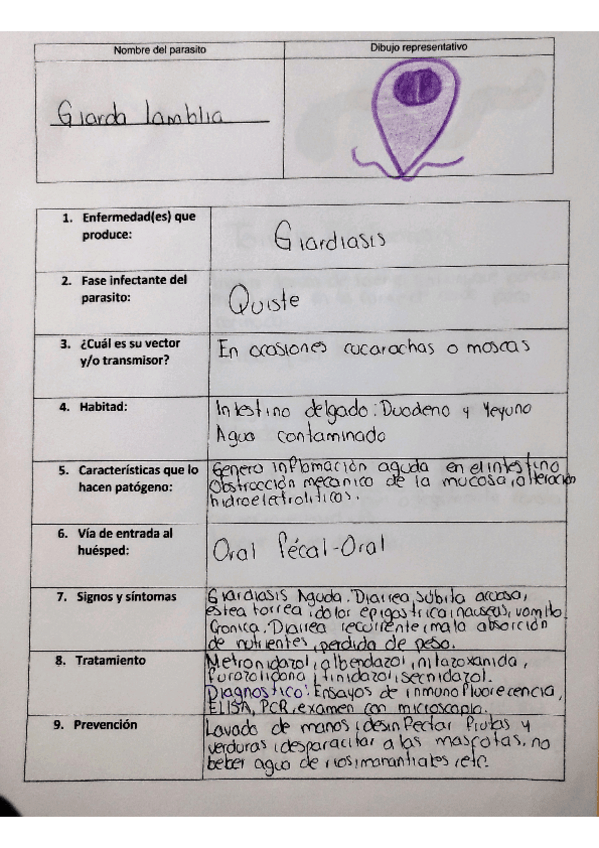 Nombre del parasito
Dibujo representativo
Giarda lamblia
1. Enfermedad(es) que
produce:
Giardiasis
2. Fase infectante del
parasito:
Quiste
3. ¿Cuál es su vector
y/o transmisor?
En ocasiones cucarachas o moscas
4. Habitad:
Intestino delgado: Duodeno y Yeyuno
Agua contaminado
5. Características que lo
hacen patógeno:
Genero inflamación aguda en el intestino
Obstracción mecanico de la mucosa, alteración
hidroeletroliticos.
6. Vía de entrada al
huésped:
Oral Fécal-Oral
7. Signos y síntomas
Giardiasis Aguda. Diarrea, súbita acuosa,
esteatorrea, dolor epigastrica, nauseas, vomito
Cronica. Diarrea recurrente, mala absorción
de nutrientes, perdida de peso.
8. Tratamiento
Metronidazol, albendazol, nitazoxanida,
Furazolidona, tinidazol, secnidazol.
Diagnostico: Ensayos de inmunofluorecencia,
ELISA, PCR, examen con microscopio.
9. Prevención
Lavado de manos, desinfectar frutas y
verduras, desparacitar a las mascotas, no
beber agua de rios, manantiales, etc.